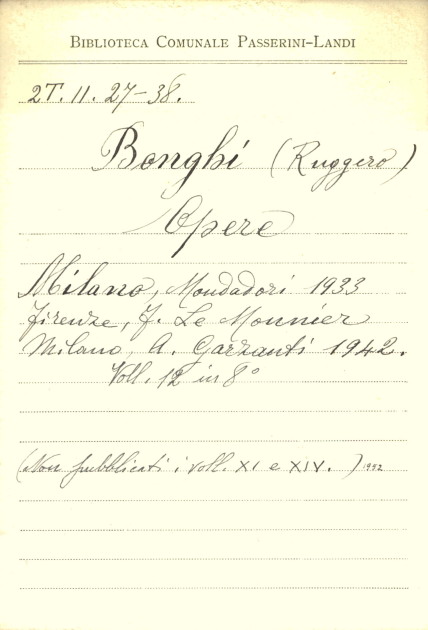 Biblioteca Comunale Passerini-Landi
2T. 11. 27-38.
Bonghi (Ruggero)
Opere
Milano, Mondadori 1933
Firenze, F. Le Monnier
Milano, A. Garzanti 1942.
Voll. 12 in 8°
(Non pubblicati i voll. XI e XIV.) 1992